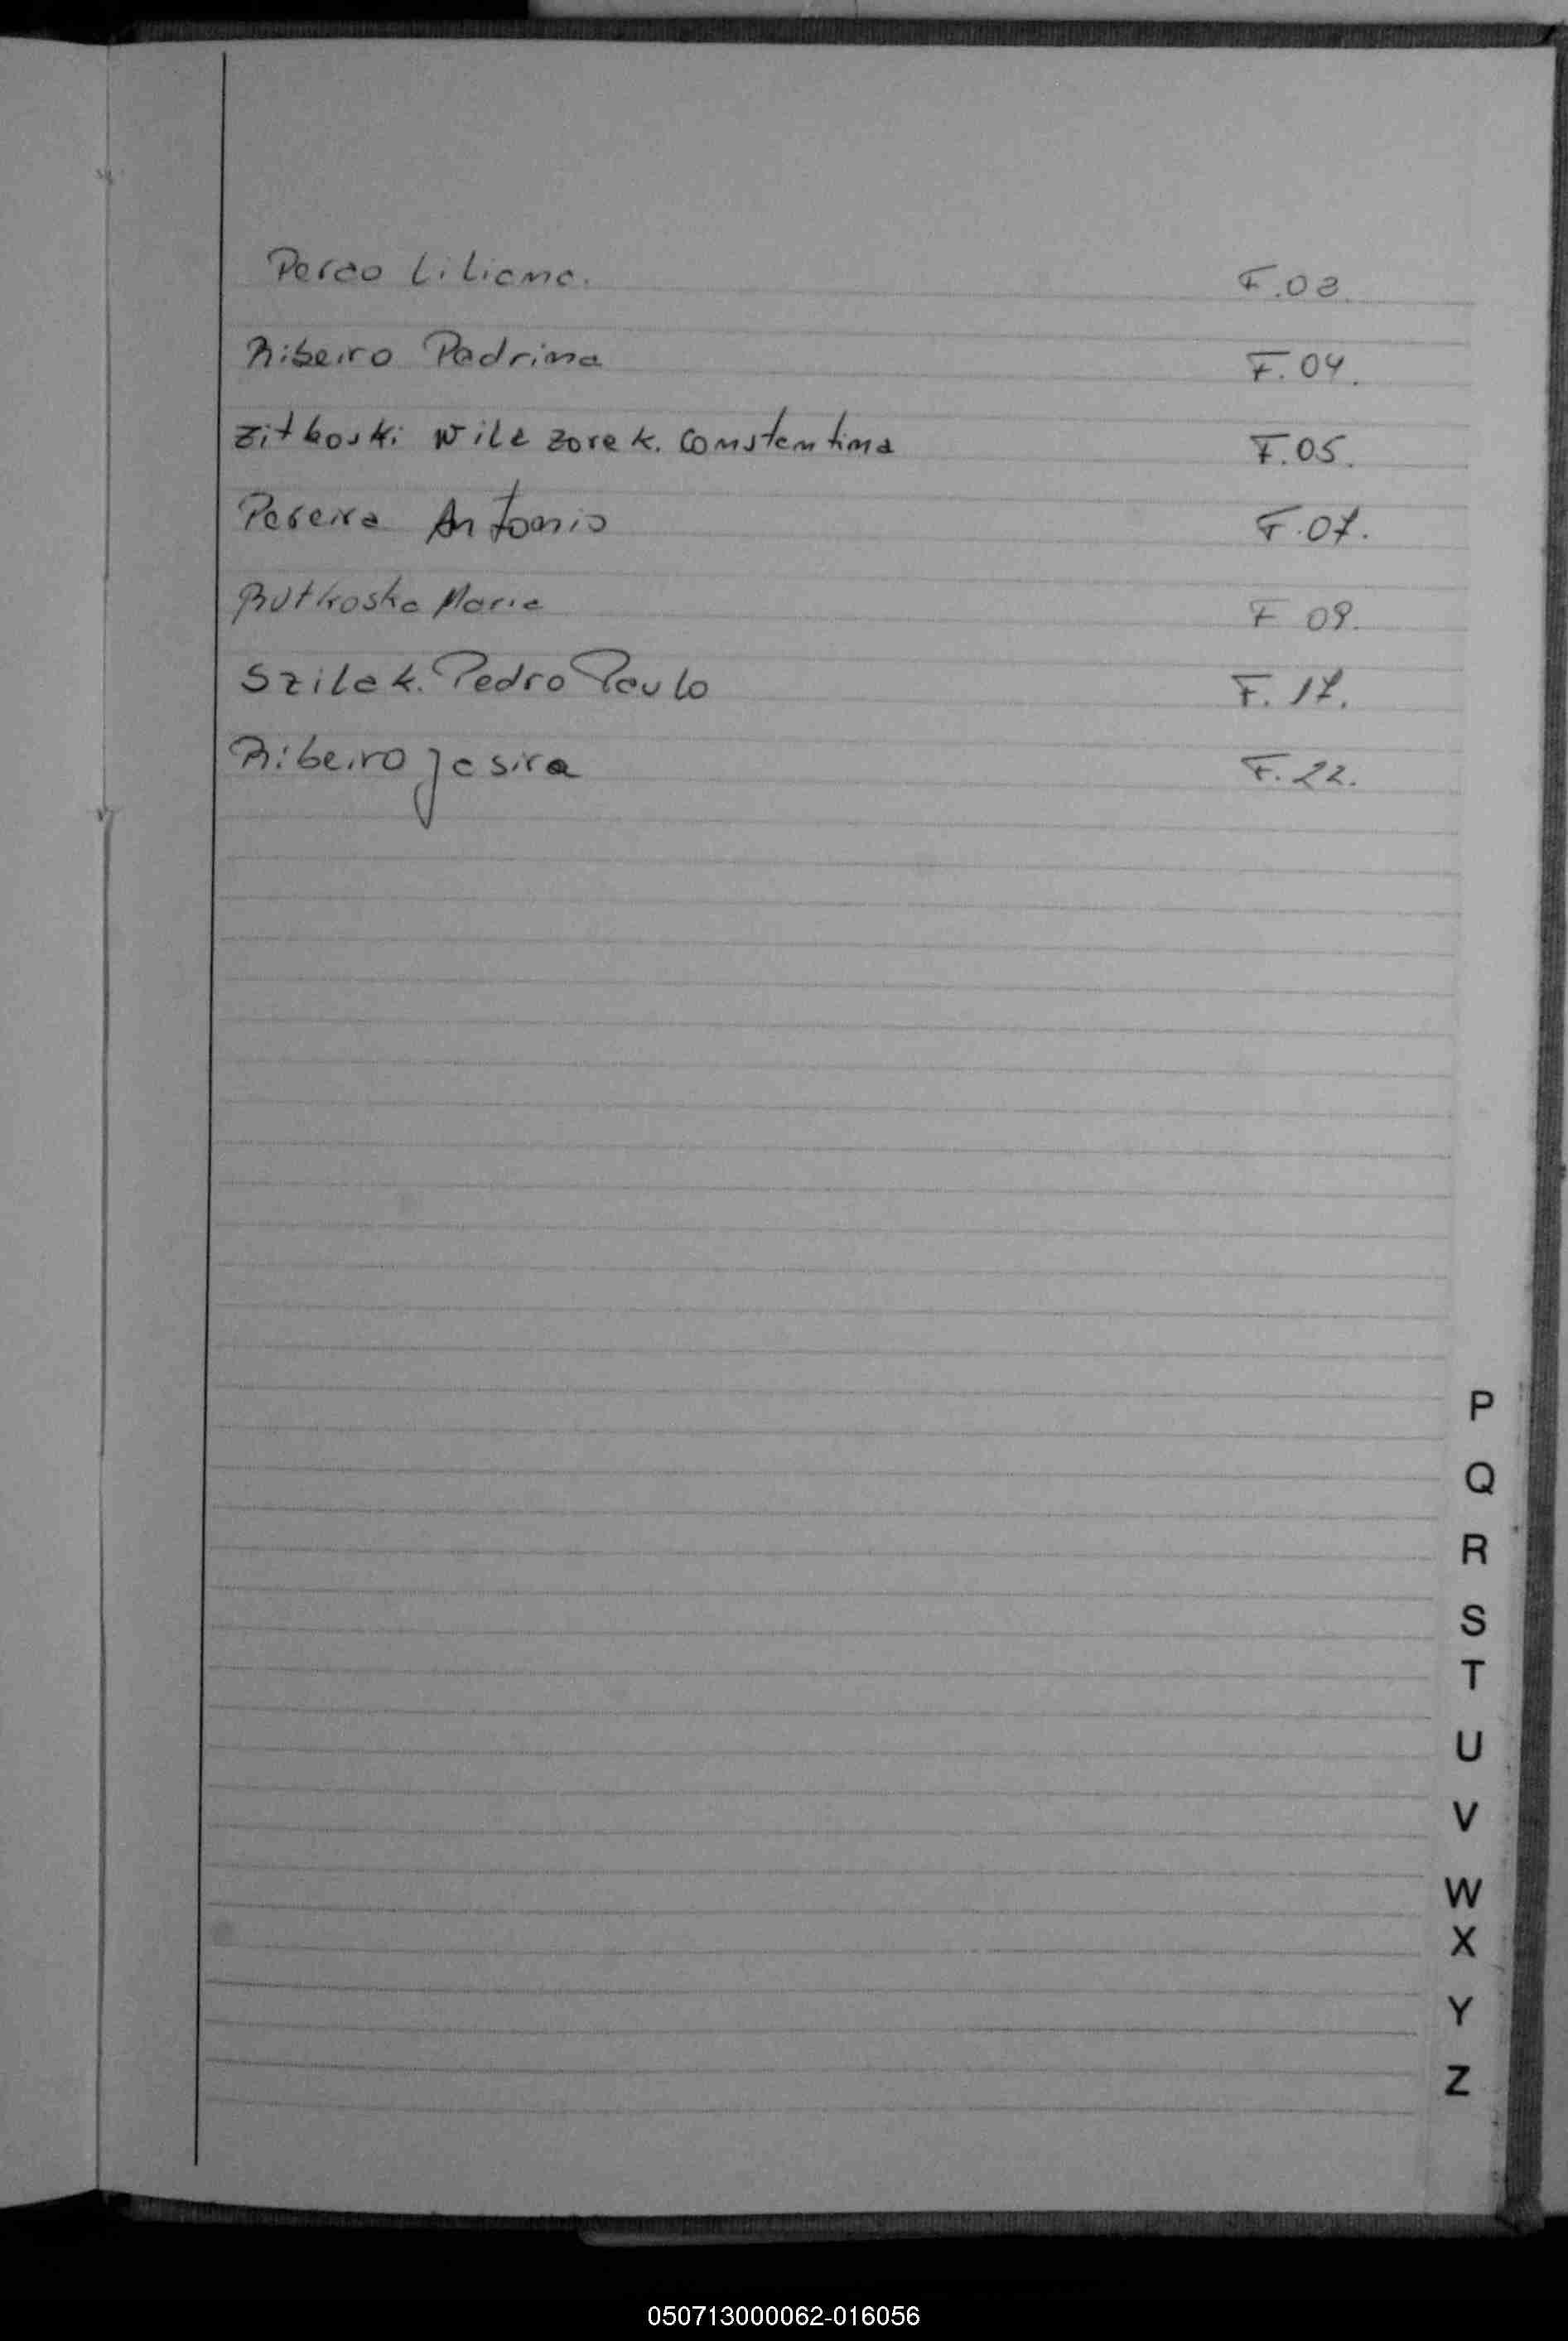 Perao Liliana. F.03.
Ribeiro Padrina F.04.
Zitkoski Wilczorek. Constantina F.05.
Pereira Antonio F.07.
Rutkoska Maria F 09.
Szilak. Pedro Paulo F. 17.
Ribeiro Jasira F. 22.
P
Q
R
S
T
U
V
W
X
Y
Z
050713000062-016056